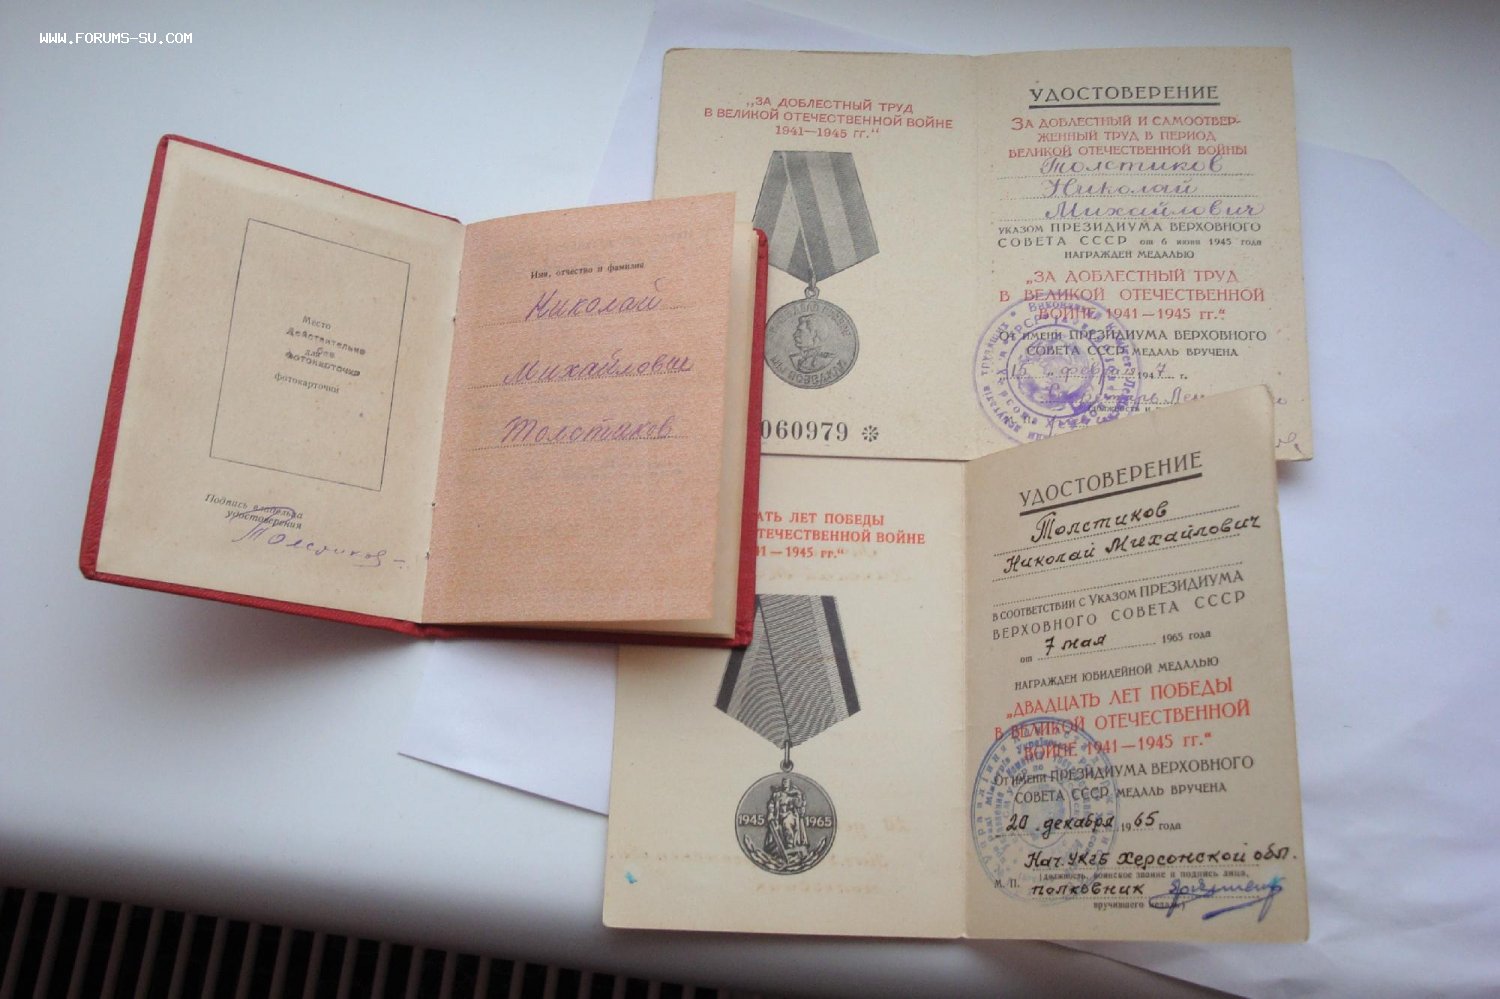 WWW.FORUMS-SU.COM
Место
Действительно
для без
фотокарточки
фотокарточки
Подпись владельца
удостоверения
Толстиков
Имя, отчество и фамилия
Николай
Михайлович
Толстиков
„ЗА ДОБЛЕСТНЫЙ ТРУД
В ВЕЛИКОЙ ОТЕЧЕСТВЕННОЙ ВОЙНЕ
1941—1945 гг.“
060979 ※
УДОСТОВЕРЕНИЕ
ЗА ДОБЛЕСТНЫЙ И САМООТВЕР-
ЖЕННЫЙ ТРУД В ПЕРИОД
ВЕЛИКОЙ ОТЕЧЕСТВЕННОЙ ВОЙНЫ
Толстиков
Николай
Михайлович
УКАЗОМ ПРЕЗИДИУМА ВЕРХОВНОГО
СОВЕТА СССР от 6 июня 1945 года
НАГРАЖДЕН МЕДАЛЬЮ
„ЗА ДОБЛЕСТНЫЙ ТРУД
В ВЕЛИКОЙ ОТЕЧЕСТВЕННОЙ
ВОЙНЕ 1941—1945 гг.“
От имени ПРЕЗИДИУМА ВЕРХОВНОГО
СОВЕТА СССР МЕДАЛЬ ВРУЧЕНА
15 1947 г.
АТЬ ЛЕТ ПОБЕДЫ
ТЕЧЕСТВЕННОЙ ВОЙНЕ
1—1945 гг.“
1945 1965
УДОСТОВЕРЕНИЕ
Толстиков
Николай Михайлович
В СООТВЕТСТВИИ С УКАЗОМ ПРЕЗИДИУМА
ВЕРХОВНОГО СОВЕТА СССР
от 7 мая 1965 года
НАГРАЖДЕН ЮБИЛЕЙНОЙ МЕДАЛЬЮ
„ДВАДЦАТЬ ЛЕТ ПОБЕДЫ
В ВЕЛИКОЙ ОТЕЧЕСТВЕННОЙ
ВОЙНЕ 1941—1945 гг.“
От имени ПРЕЗИДИУМА ВЕРХОВНОГО
СОВЕТА СССР МЕДАЛЬ ВРУЧЕНА
20 декабря 1965 года
Нач. УКГБ Херсонской обл.
(должность, воинское звание и подпись лица,
М. П. полковник
вручившего медаль)